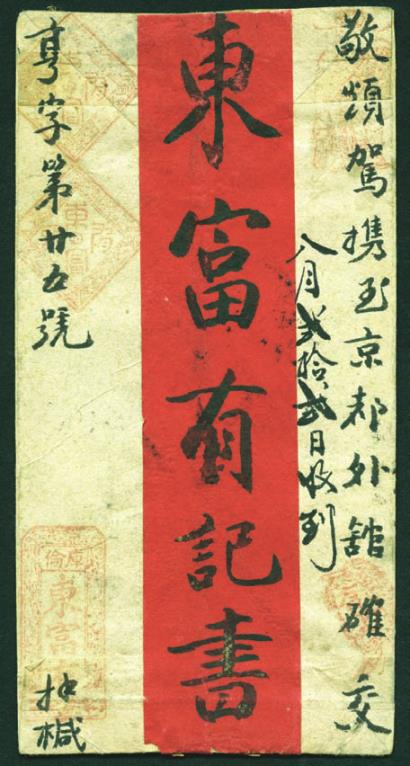 敬煩駕携至京都外舘確交
八月弍拾弍日收到
東富有記書
亨字第廿五號
椷
庫倫
東富